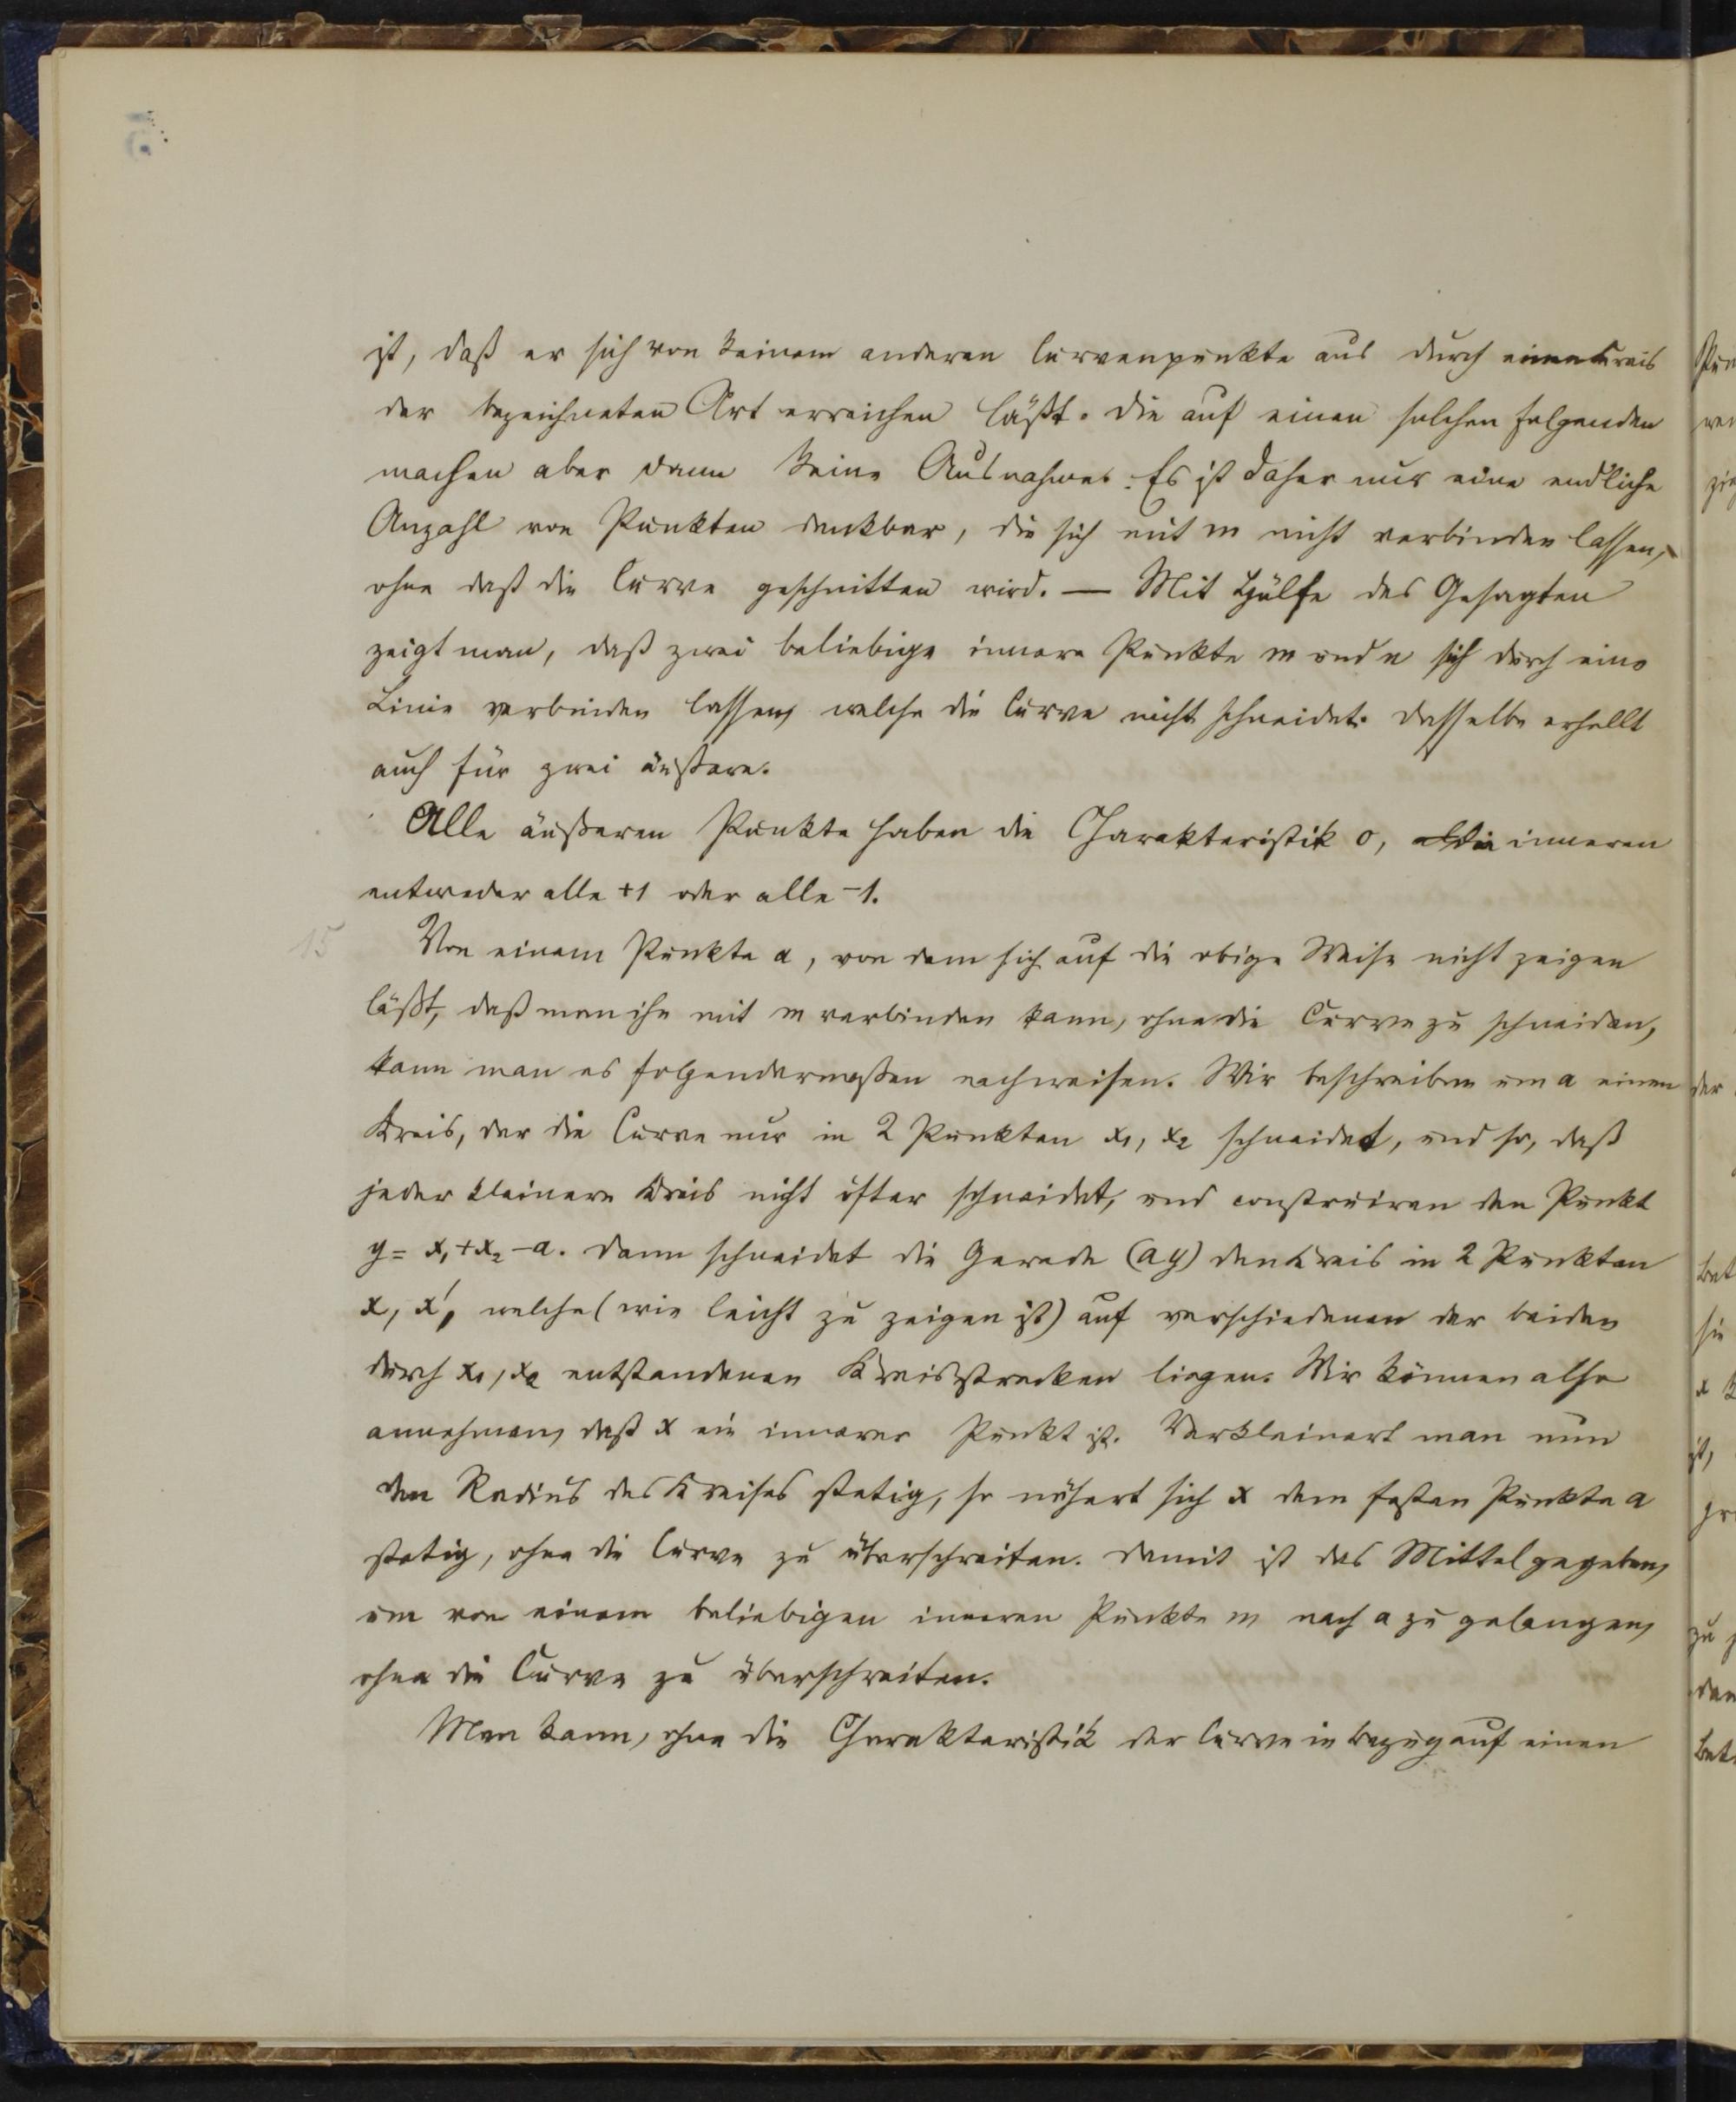 ist, daß er sich von keinem anderen Curvenpunkte aus durch einen Kreis
der bezeichneten Art erreichen läßt. Die auf einen solchen folgenden
machen aber dann keine Ausnahme. Es ist daher nur eine endliche
Anzahl von Punkten denkbar, die sich mit m nicht verbinden lassen,
ohne daß die Curve geschnitten wird. — Mit Hülfe des Gesagten
zeigt man, daß zwei beliebige innere Punkte m und n sich durch eine
Linie verbinden lassen, welche die Curve nicht schneidet. Dasselbe erhellt
auch für zwei äußere.
Alle äußeren Punkte haben die Charakteristik 0, die inneren
entweder alle +1 oder alle −1.
15
Von einem Punkte a, von dem sich auf die obige Weise nicht zeigen
läßt, daß man ihn mit m verbinden kann, ohne die Curve zu schneiden,
kann man es folgendermaßen nachweisen. Wir beschreiben um a einen
Kreis, der die Curve nur in 2 Punkten x₁, x₂ schneidet, und so, daß
jeder kleinere Kreis nicht öfter schneidet, und construiren den Punkt
y = x₁ + x₂ − a. Dann schneidet die Gerade (ay) den Kreis in 2 Punkten
x, x′, welche (wie leicht zu zeigen ist) auf verschiedenen der beiden
durch x₁, x₂ entstandenen Kreisstrecken liegen. Wir können also
annehmen, daß x ein innerer Punkt ist. Verkleinert man nun
den Radius des Kreises stetig, so nähert sich x dem festen Punkte a
stetig, ohne die Curve zu überschreiten. Damit ist das Mittel gegeben,
um von einem beliebigen inneren Punkte m nach a zu gelangen,
ohne die Curve zu überschreiten.
Man kann, ohne die Charakteristik der Curve in Bezug auf einen